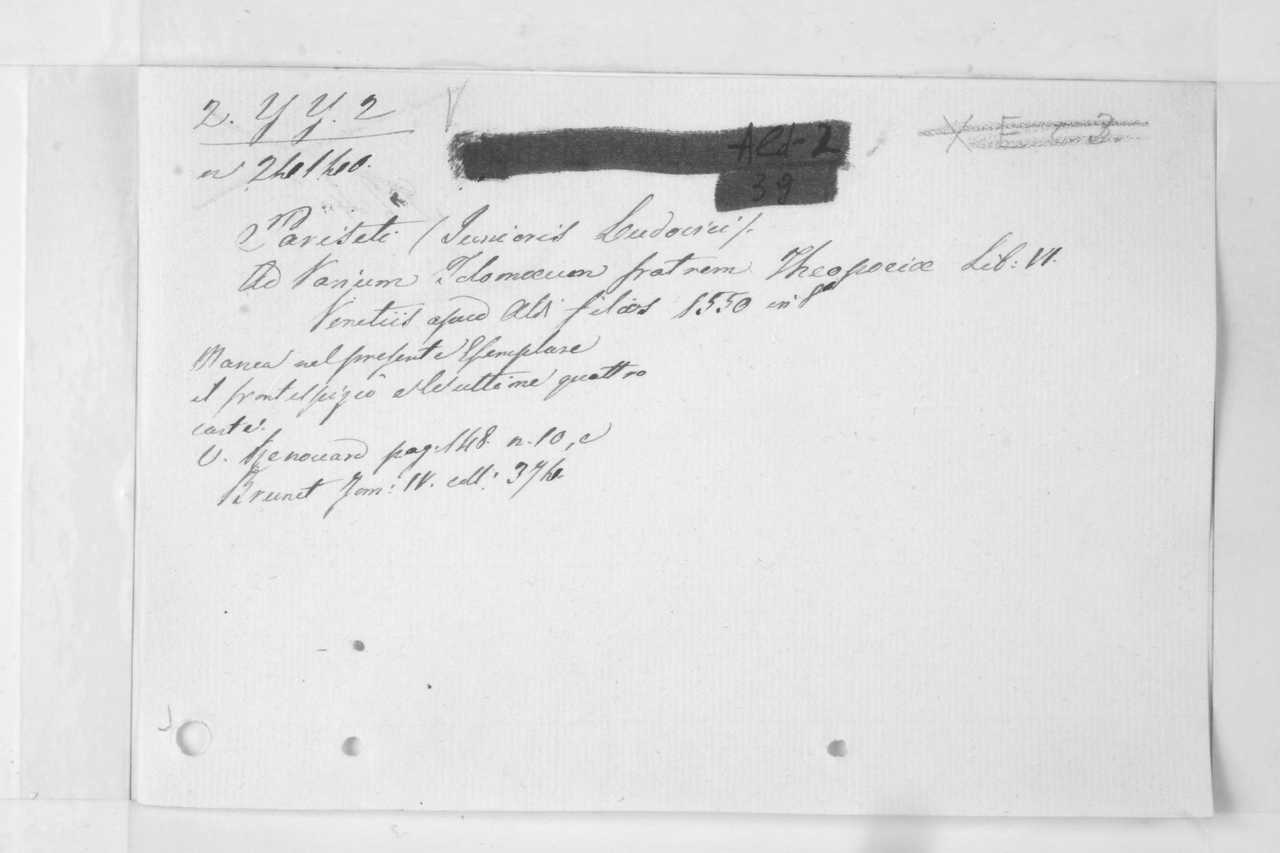 2. YY. 2
Ald-2
X E 3
39
Pariseti (Junioris Ludovici).
Ad Vanium Idomæum fratrem Theopoeiæ Lib: VI.
Venetiis apud Aldi filios 1550 in 8°
Manca nel presente Esemplare
il frontespizio e le ultime quattro
carte.
V. Renouard pag. 148. n. 10, e
Brunet Tom: IV. coll: 374.